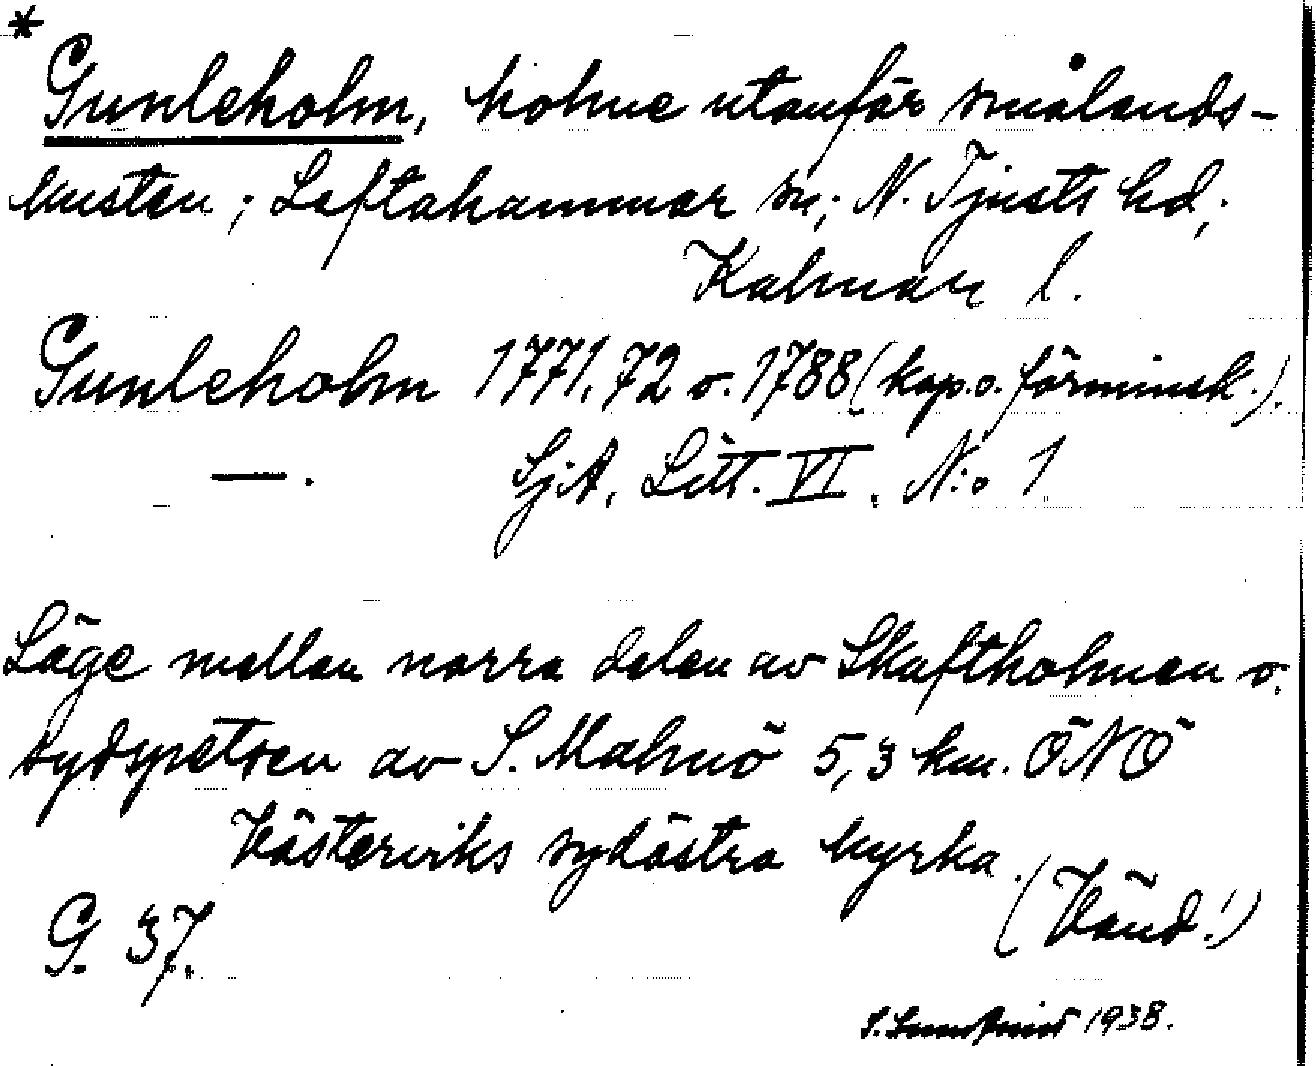 *
Gunleholm, holme utanför smålands-
kusten; Loftahammar sn; N. Tjusts hd;
Kalmar l.
Gunleholm 1771, 72 o. 1788 (kop. o. förminsk.).
—. SjA, Litt. VI, N:o 1
Läge mellan norra delen av Skaftholmen o.
sydspetsen av S. Malmö 5,3 km. ÖNÖ
Västerviks sydöstra kyrka.
(Vänd!)
G. 37.
1938.